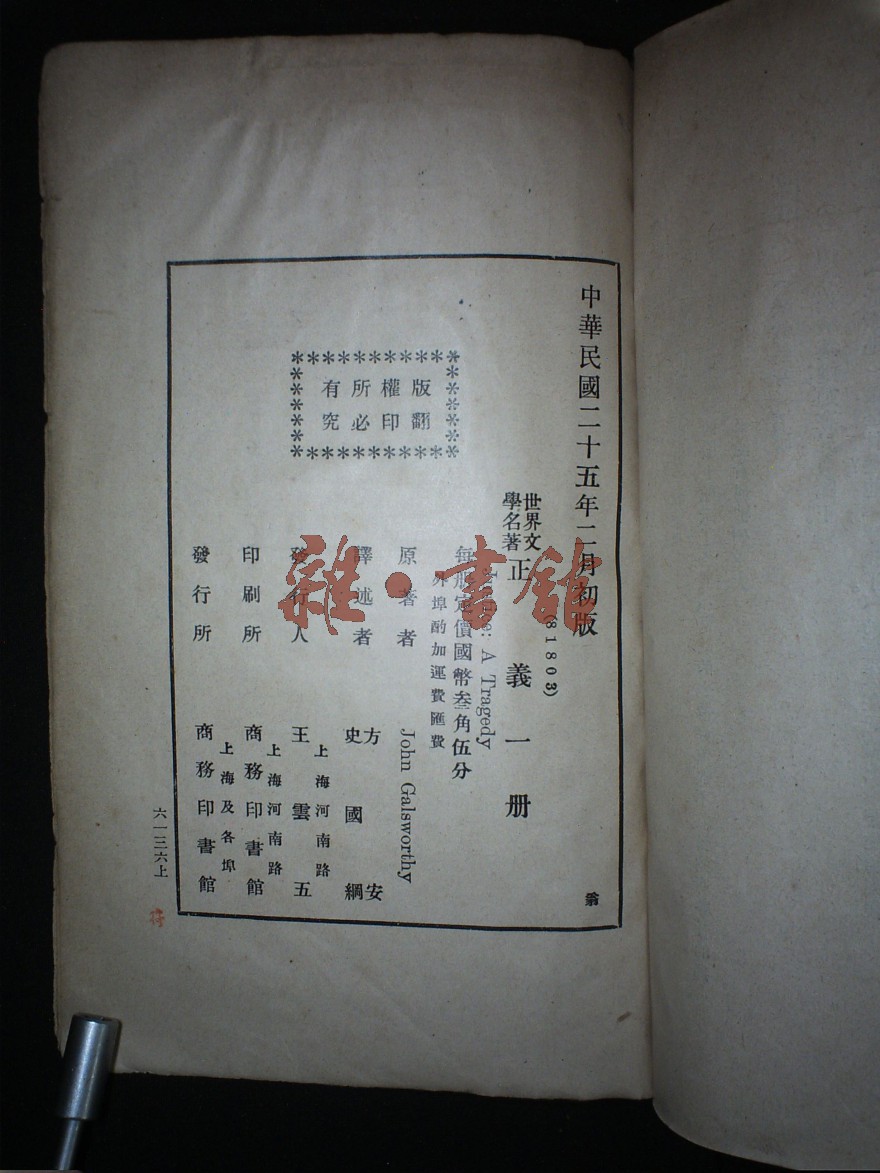 中華民國二十五年二月初版
(81803)
世界文學名著 正義一册
: A Tragedy
每册定價國幣叁角伍分
外埠酌加運費匯費
原著者 John Galsworthy
譯述者 方安 史國綱
發行人 王雲五
上海河南路
印刷所 商務印書館
上海河南路
發行所 商務印書館
上海及各埠
版權所有
翻印必究
六一三六上
雜·書館